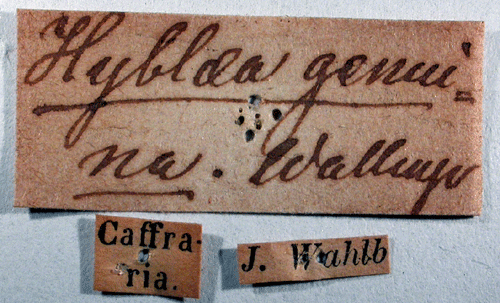 Hyblæa genui-
na. Wallengr
Caffra-
ria.
J. Wahlb